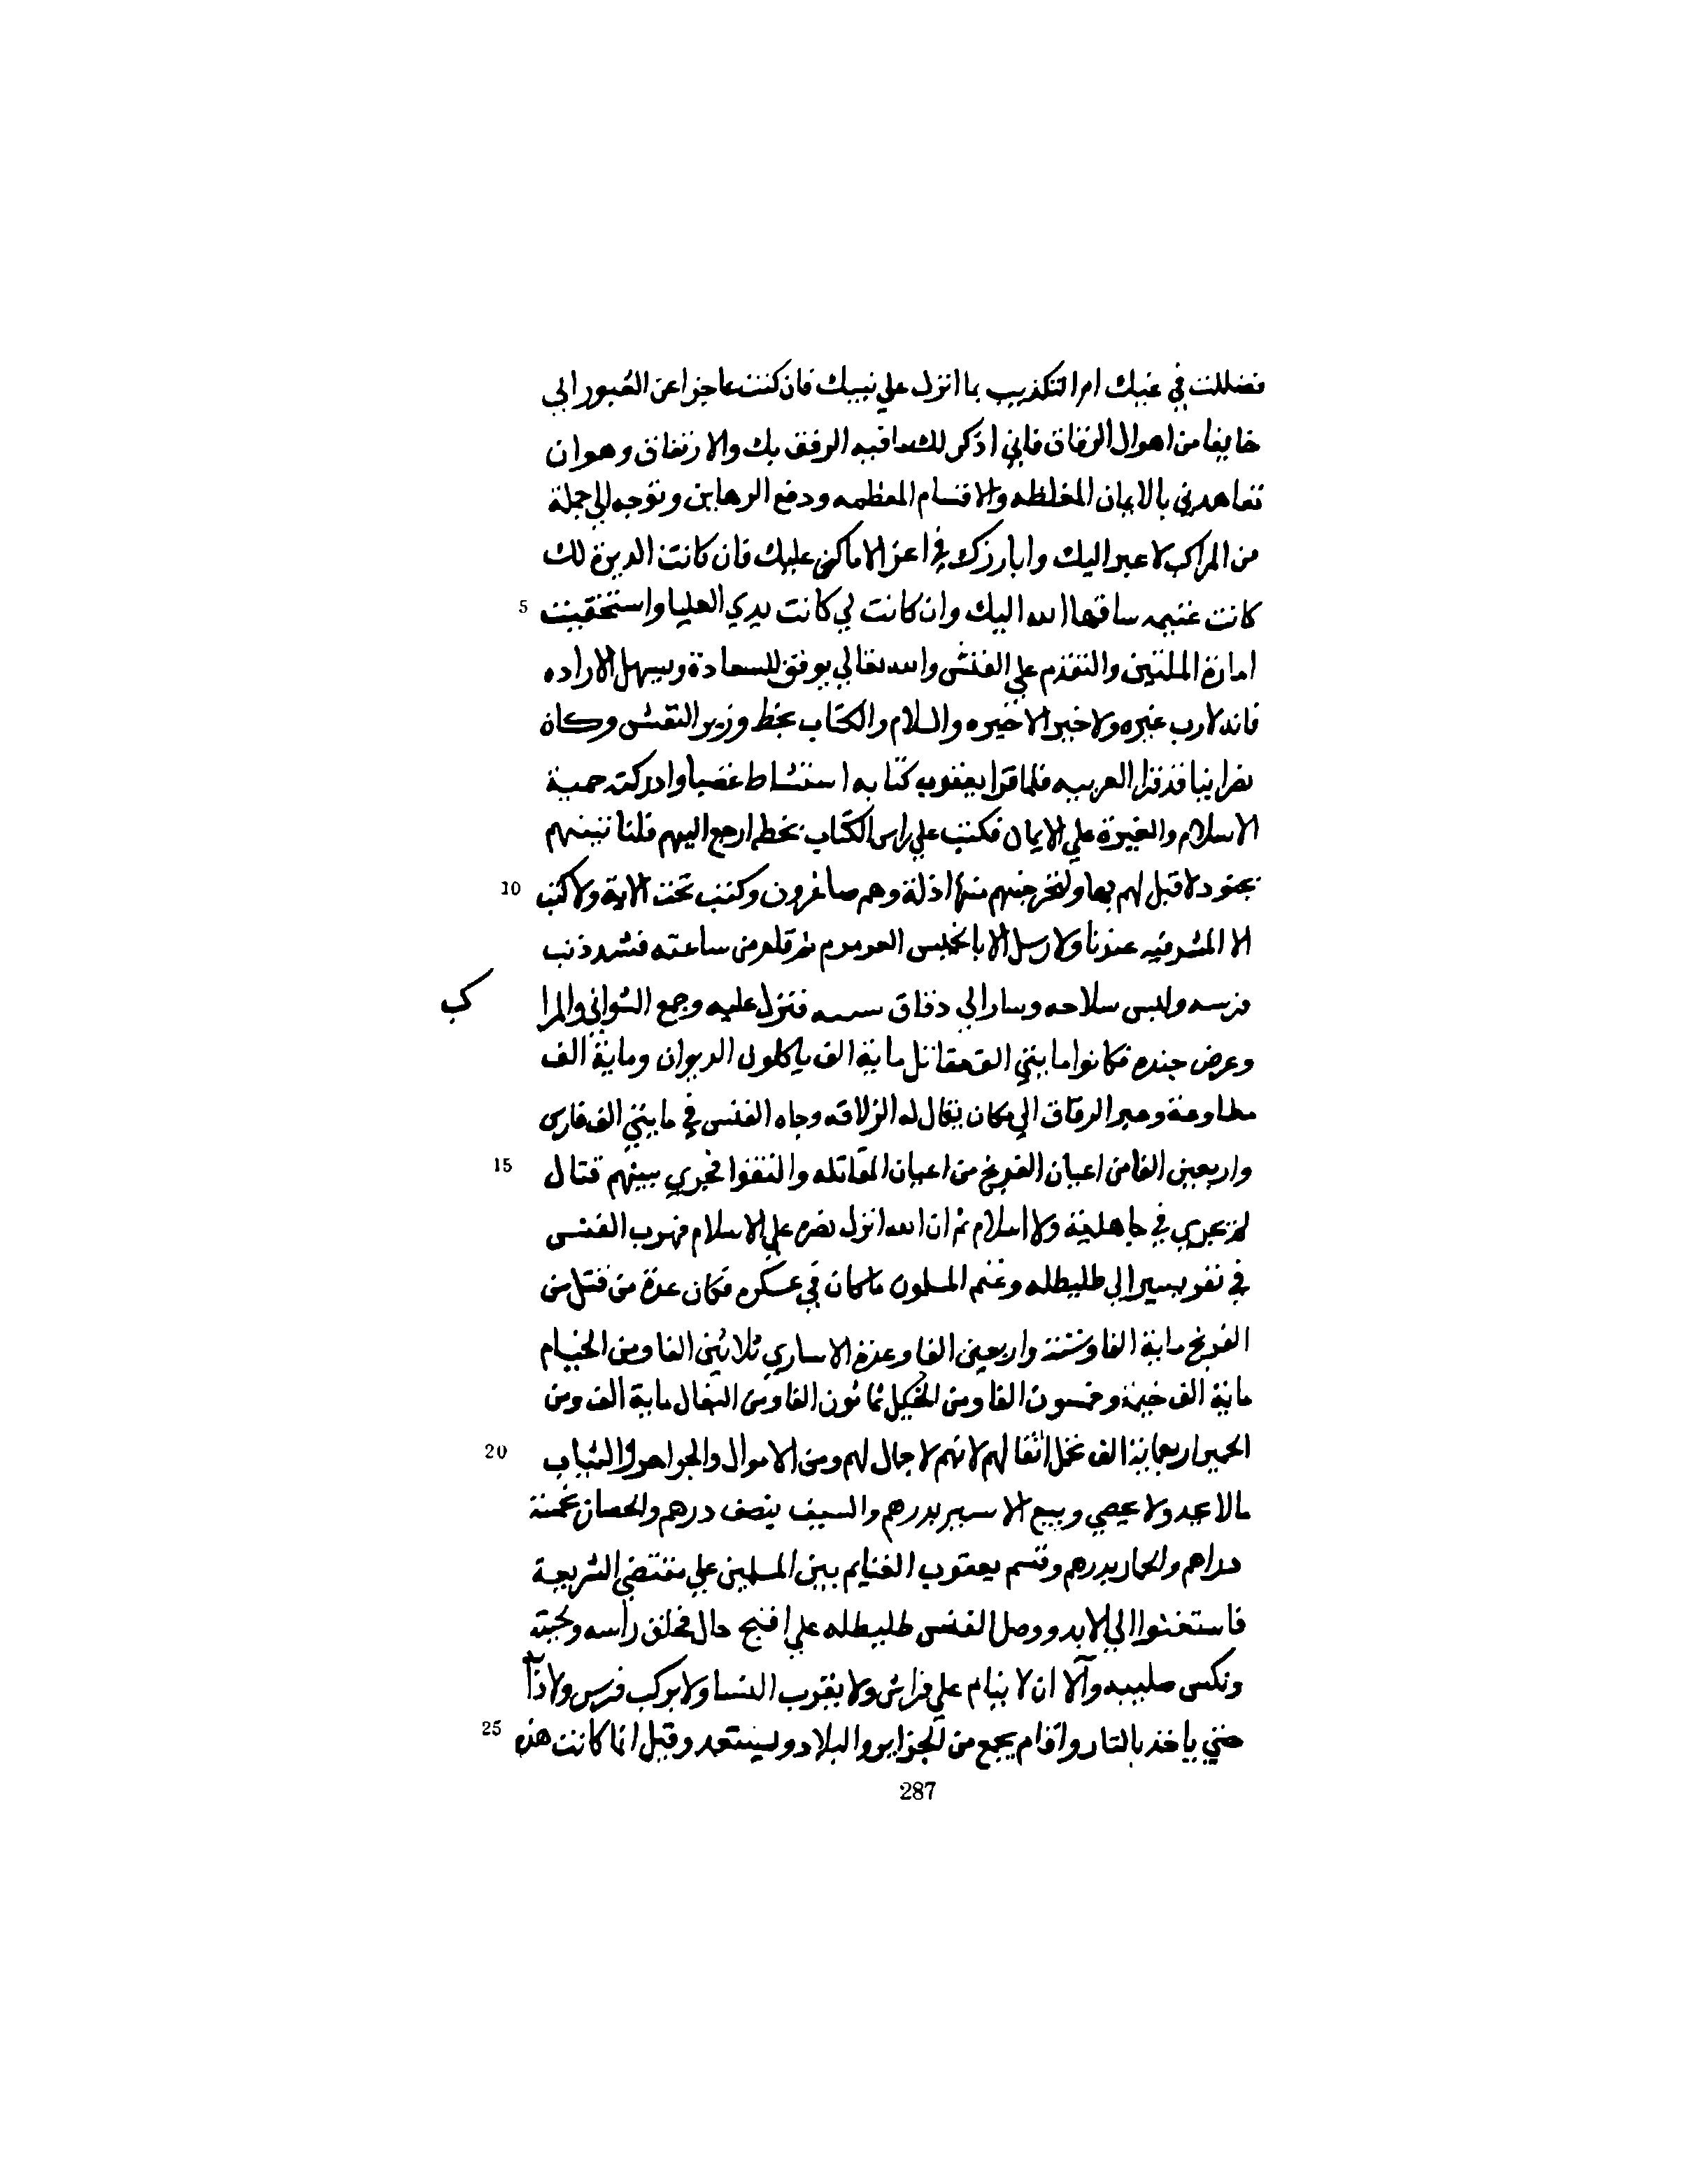 فضللت في غيك ام التكذيب بما انزل علي نبيك فان كنت عاجزا عن العبور الي
خايفا من اهوال الزقاق فاني اذكر لك ما فيه الرفق بك والارتفاق وهو ان
تعاهدني بالايمان المغلظه والاقسام المعظمه ودفع الرهاين وتوجه الي جملة
من المراكب لاعبر اليك وابارزك في اعز الاماكن عليك فان كانت الديرة لك
كانت غنيمه ساقها الله اليك وان كانت لي كانت يدي العليا واستحقيت 5
امارة الملتين والتقدم علي الفنش والله تعالي يوفق للسعادة ويسهل الاراده
فانه لا رب غيره ولا خير الا خيره والسلام والكتاب بخط وزير الفنش وكان
نصرانيا قد قرا العربيه فلما قرا يعقوب كتابه استشاط غضبا وادركته حمية
الاسلام والغيرة علي الايمان فكتب علي راس الكتاب بخطه ارجع اليهم فلناتينهم
بجنود لا قبل لهم بها ولنخرجنهم منها اذلة وهم صاغرون وكتب تحت الاية ولا كتب 10
الا المشرفيه عندنا ولا رسل الا بالخميس العرمرم ثم قام من ساعته فشد ذنب
فرسه ولبس سلاحه وسار الي زقاق سبته فنزل عليه وجمع الشواني والمرا كب
وعرض جنده فكانوا مايتي الف مقاتل ماية الف ياكلون الديوان وماية الف
مطاوعة وعبر الزقاق الي مكان يقال له الزلاقه وجاه الفنس في مايتي الف فارس
واربعين الفا من اعيان الفرنج من اعيان المقاتله والتقوا فجري بينهم قتال 15
لم يجري في جاهلية ولا اسلام ثم ان الله انزل نصره علي الاسلام فهرب الفنس
في نفر يسير الي طليطله وغنم المسلمون ما كان في عسكره فكان عدة من قتل من
الفرنج ماية الفا وستة واربعين الفا وعدة الاساري ثلاثين الفا ومن الخيام
ماية الف خيمة وخمسون الفا ومن الخيل ثمانون الفا ومن البغال ماية الف ومن
الحمير اربعماية الف تحمل اثقالهم لانهم لا جمال لهم ومن الاموال والجواهر والثياب 20
مالا يحد ولا يحصي وبيع الاسير بدرهم والسيف بنصف درهم والحصان بخمسة
دراهم والحمار بدرهم وقسم يعقوب الغنايم بين المسلمين علي مقتضي الشريعة
فاستغنوا الي الابد ووصل الفنس طليطله علي اقبح حال فحلق راسه ولحيته
ونكس صليبه وآلا ان لا ينام علي فراش ولا يقرب النسا ولا يركب فرس ولا ذا
حتي ياخذ بالثار واقام يجمع من الجزاير والبلاد ويستعد وقيل انما كانت هذه 25
287